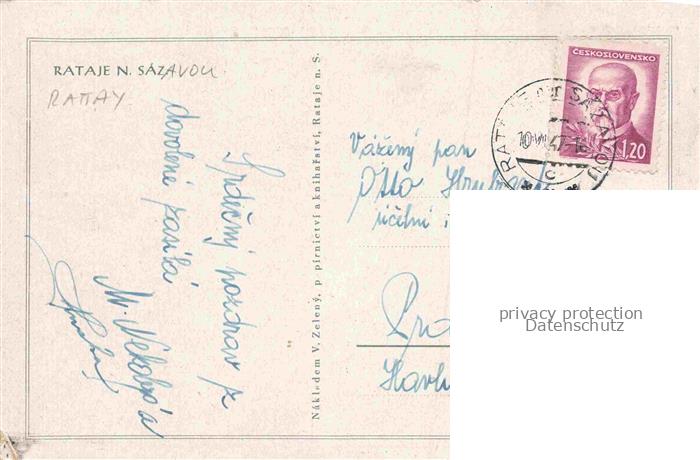 RATAJE N. SÁZAVOU
RATTAY
Srdečný pozdrav z
dovolené zasílá
M.
Nákladem V. Zelený, papírnictví a knihařství, Rataje n. S.
ČESKOSLOVENSKO
1,20
RATAJE NAD SÁZAVOU
47-16
C
Vážený pan
Otto
účetní
Havl
privacy protection
Datenschutz